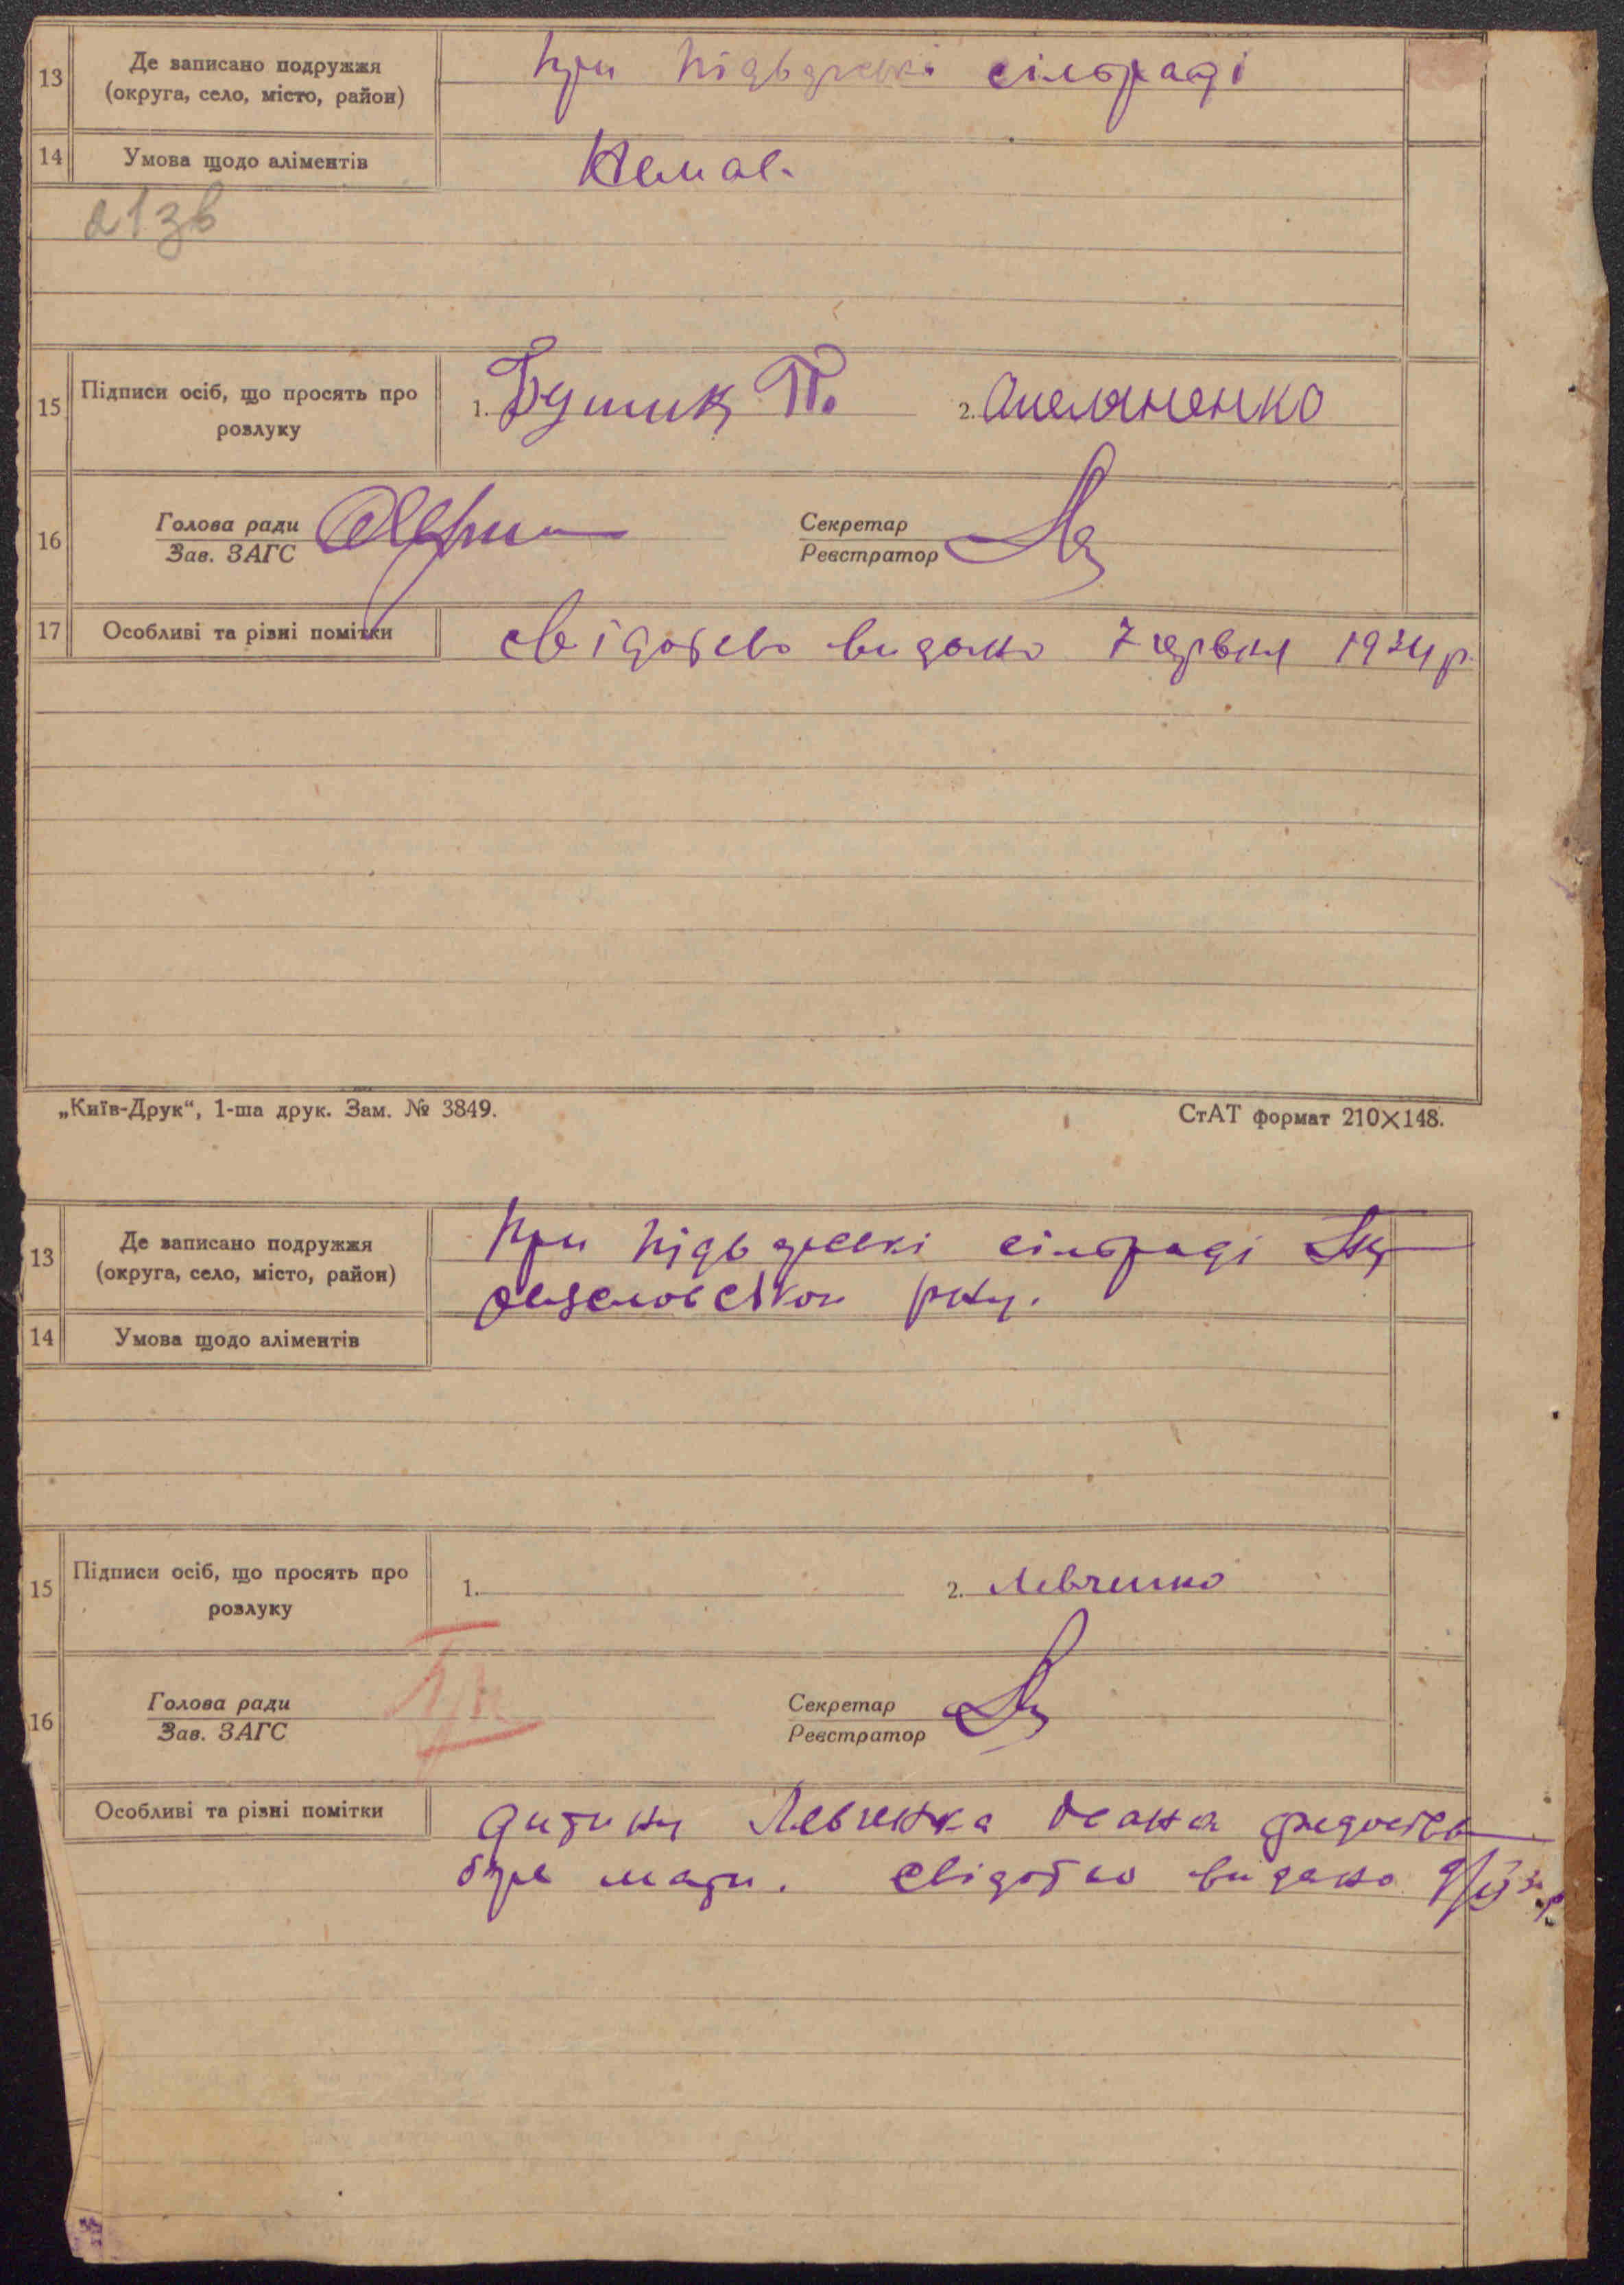 13 Де записано подружжя при Підвурські сільраді
(округа, село, місто, район)
14 Умова щодо аліментів Немає.
21зв
15 Підписи осіб, що просять про 1. Бушик П. 2. Омеляненко
розлуку
16 Голова ради Секретар
Зав. ЗАГС Реєстратор
17 Особливі та різні помітки свідотсво видано 7 червня 1934 р.
„Київ-Друк“, 1-ша друк. Зам. № 3849. СтАТ формат 210×148.
13 Де записано подружжя При Підвурські сільраді
(округа, село, місто, район)
14 Умова щодо аліментів
15 Підписи осіб, що просять про 1. 2. Левченко
розлуку
16 Голова ради Секретар
Зав. ЗАГС Реєстратор
Особливі та різні помітки дитину Левченка
бере мати. свідотво видано